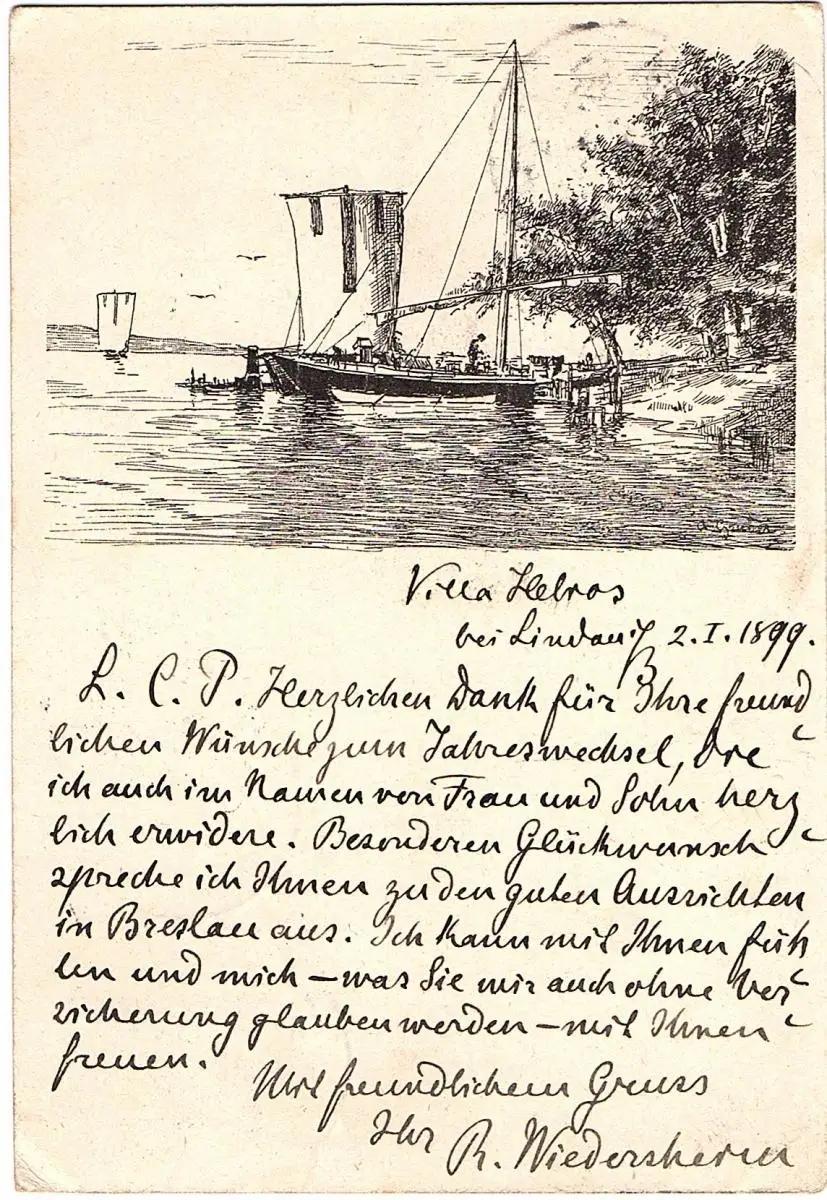 Villa Helros
bei Lindau i/B 2. I. 1899.
L. C. P. Herzlichen Dank für Ihre freund
lichen Wünsche zum Jahreswechsel, die
ich auch im Namen von Frau und Sohn herz
lich erwidere. Besonderen Glückwunsch
spreche ich Ihnen zu den guten Aussichten
in Breslau aus. Ich kann mit Ihnen füh
len und mich – was Sie mir auch ohne Ver
sicherung glauben werden – mit Ihnen
freuen.
Mit freundlichem Gruss
Ihr R. Wiedersheim